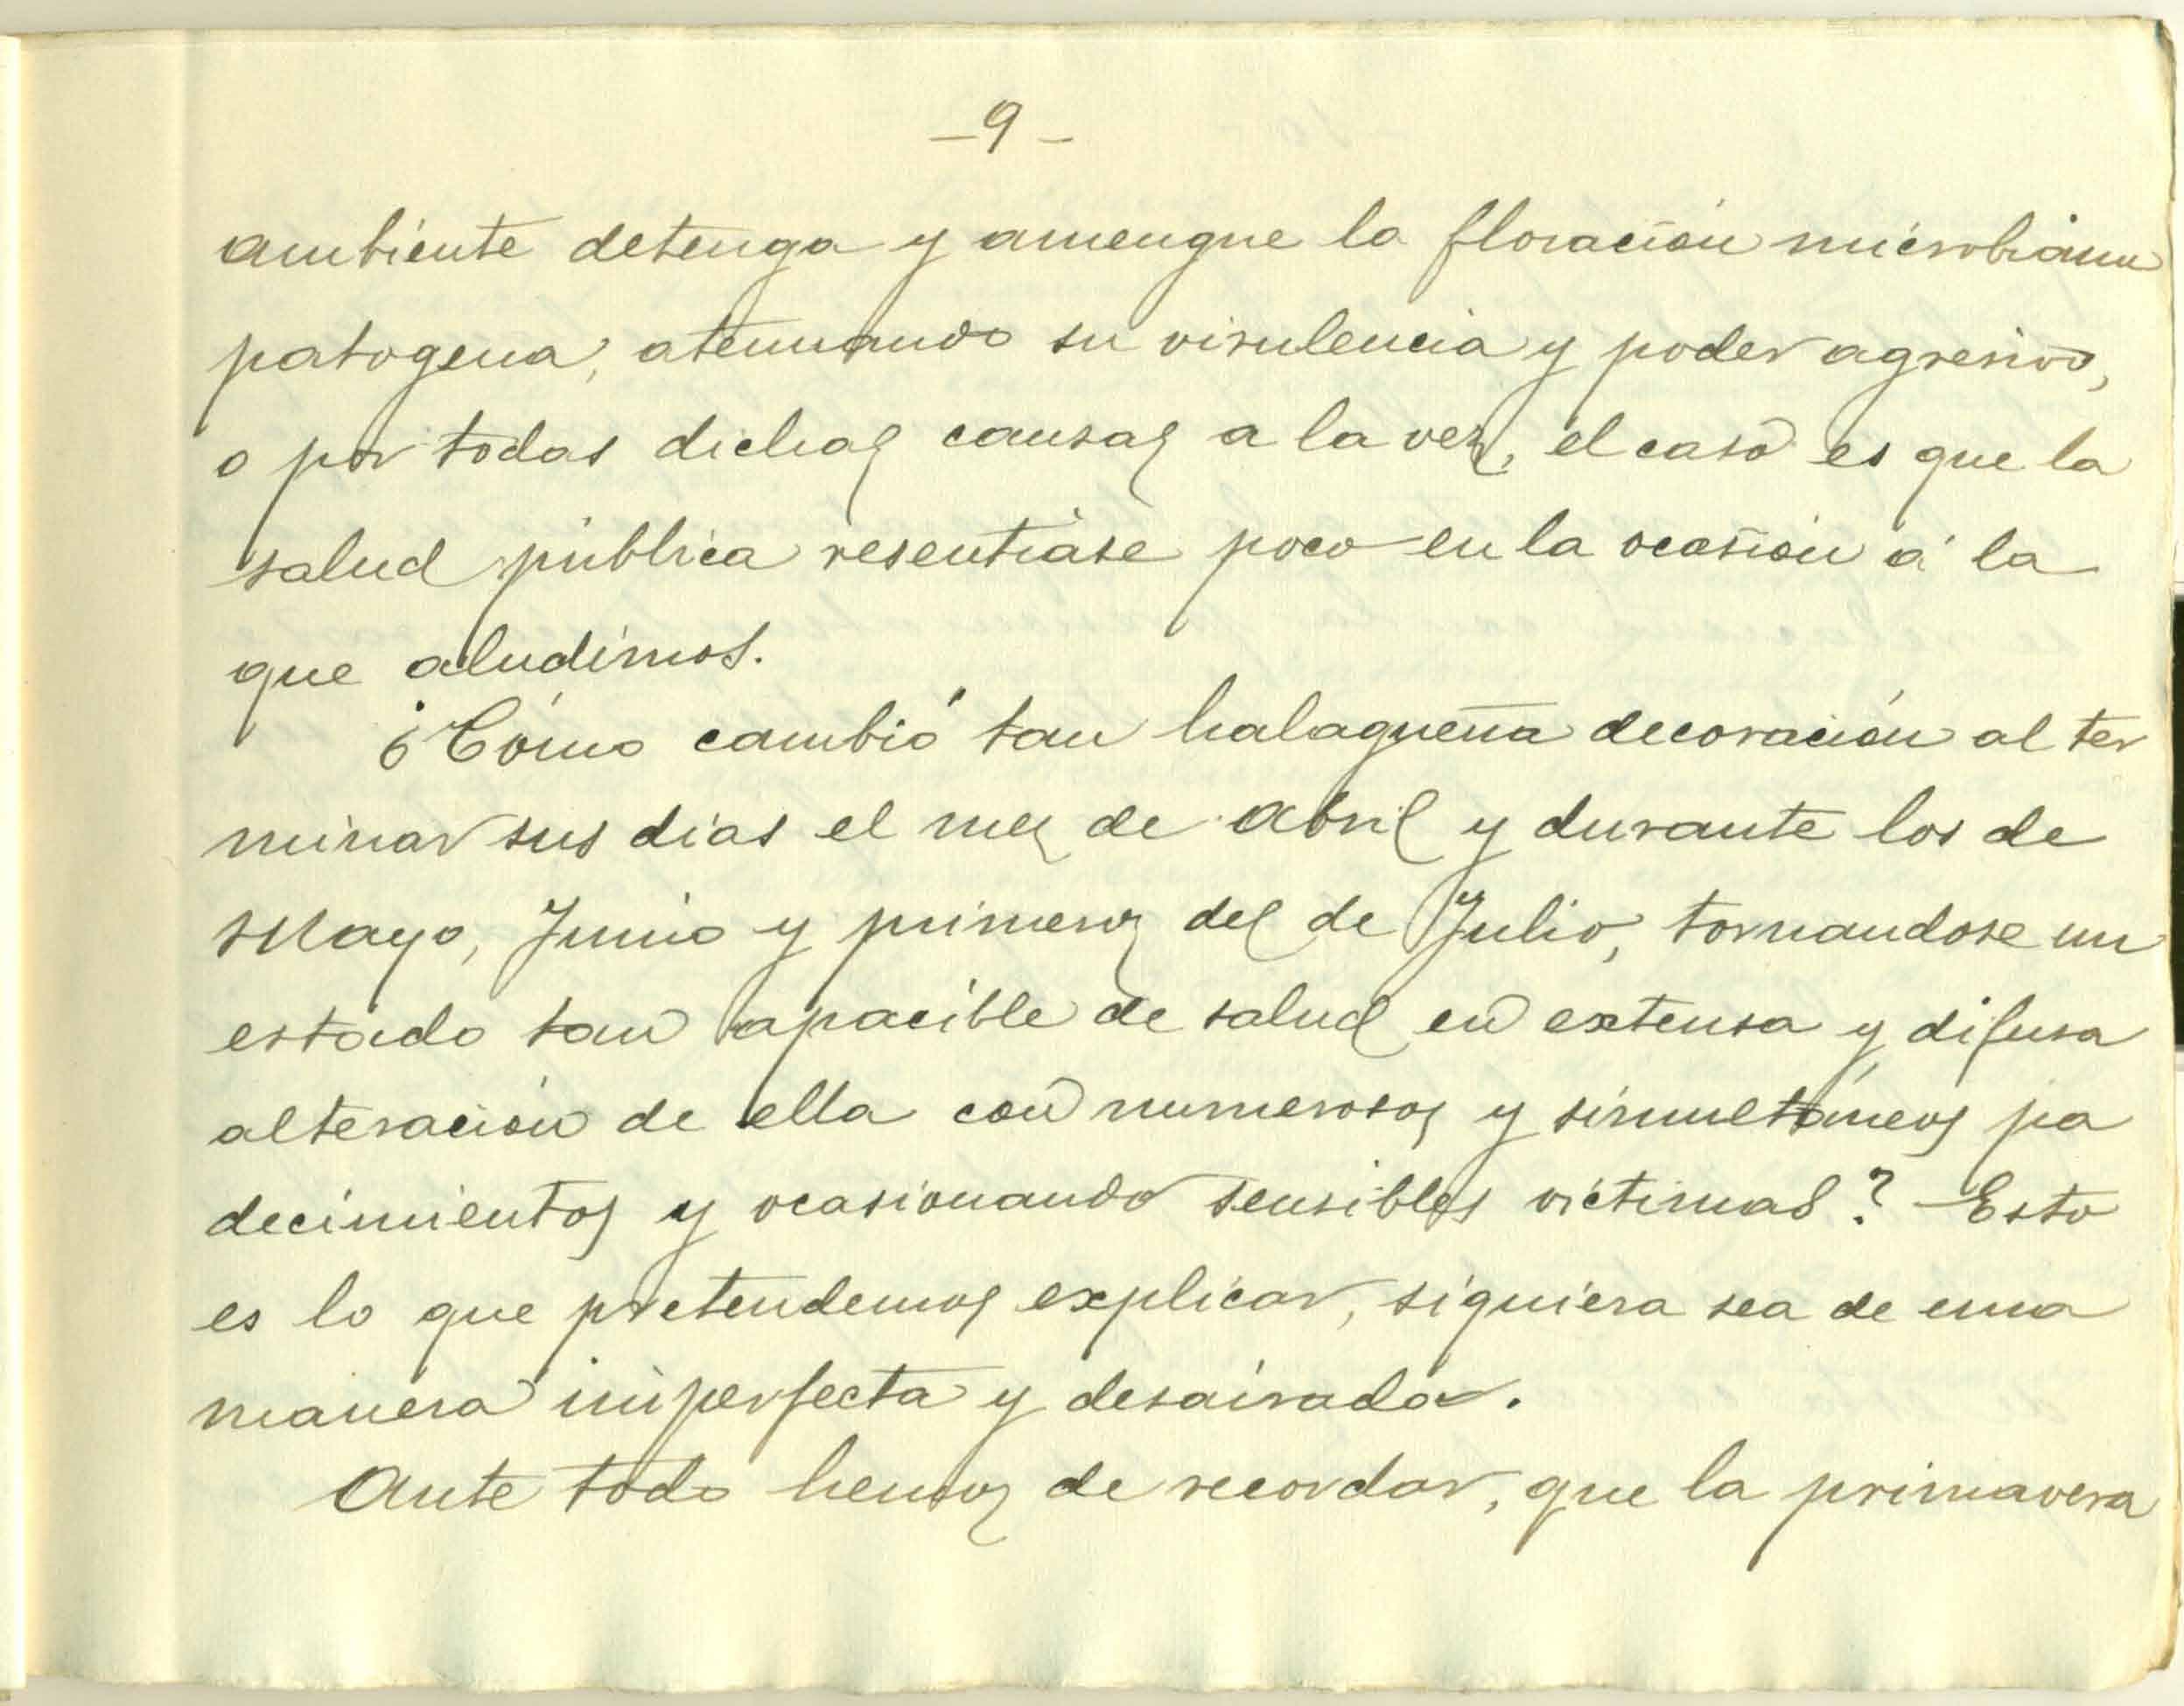 -9-
ambiente detenga y amengue la floración microbiana
patogena, atenuando su virulencia y poder agresivo,
o por todas dichas causas a la vez, el caso es que la
salud pública resentíase poco en la ocasión á la
que aludimos.
¿Cómo cambió tan halagüeña decoración al ter
minar sus dias el mes de abril y durante los de
Mayo, Junio y primeros del de Julio, tornandose un
estado tan apacible de salud en extensa y difusa
alteración de ella con numerosos y simultáneos pa
decimientos y ocasionando sensibles víctimas? Esto
es lo que pretendemos explicar, siquiera sea de una
manera imperfecta y desairada.
Ante todo hemos de recordar, que la primavera